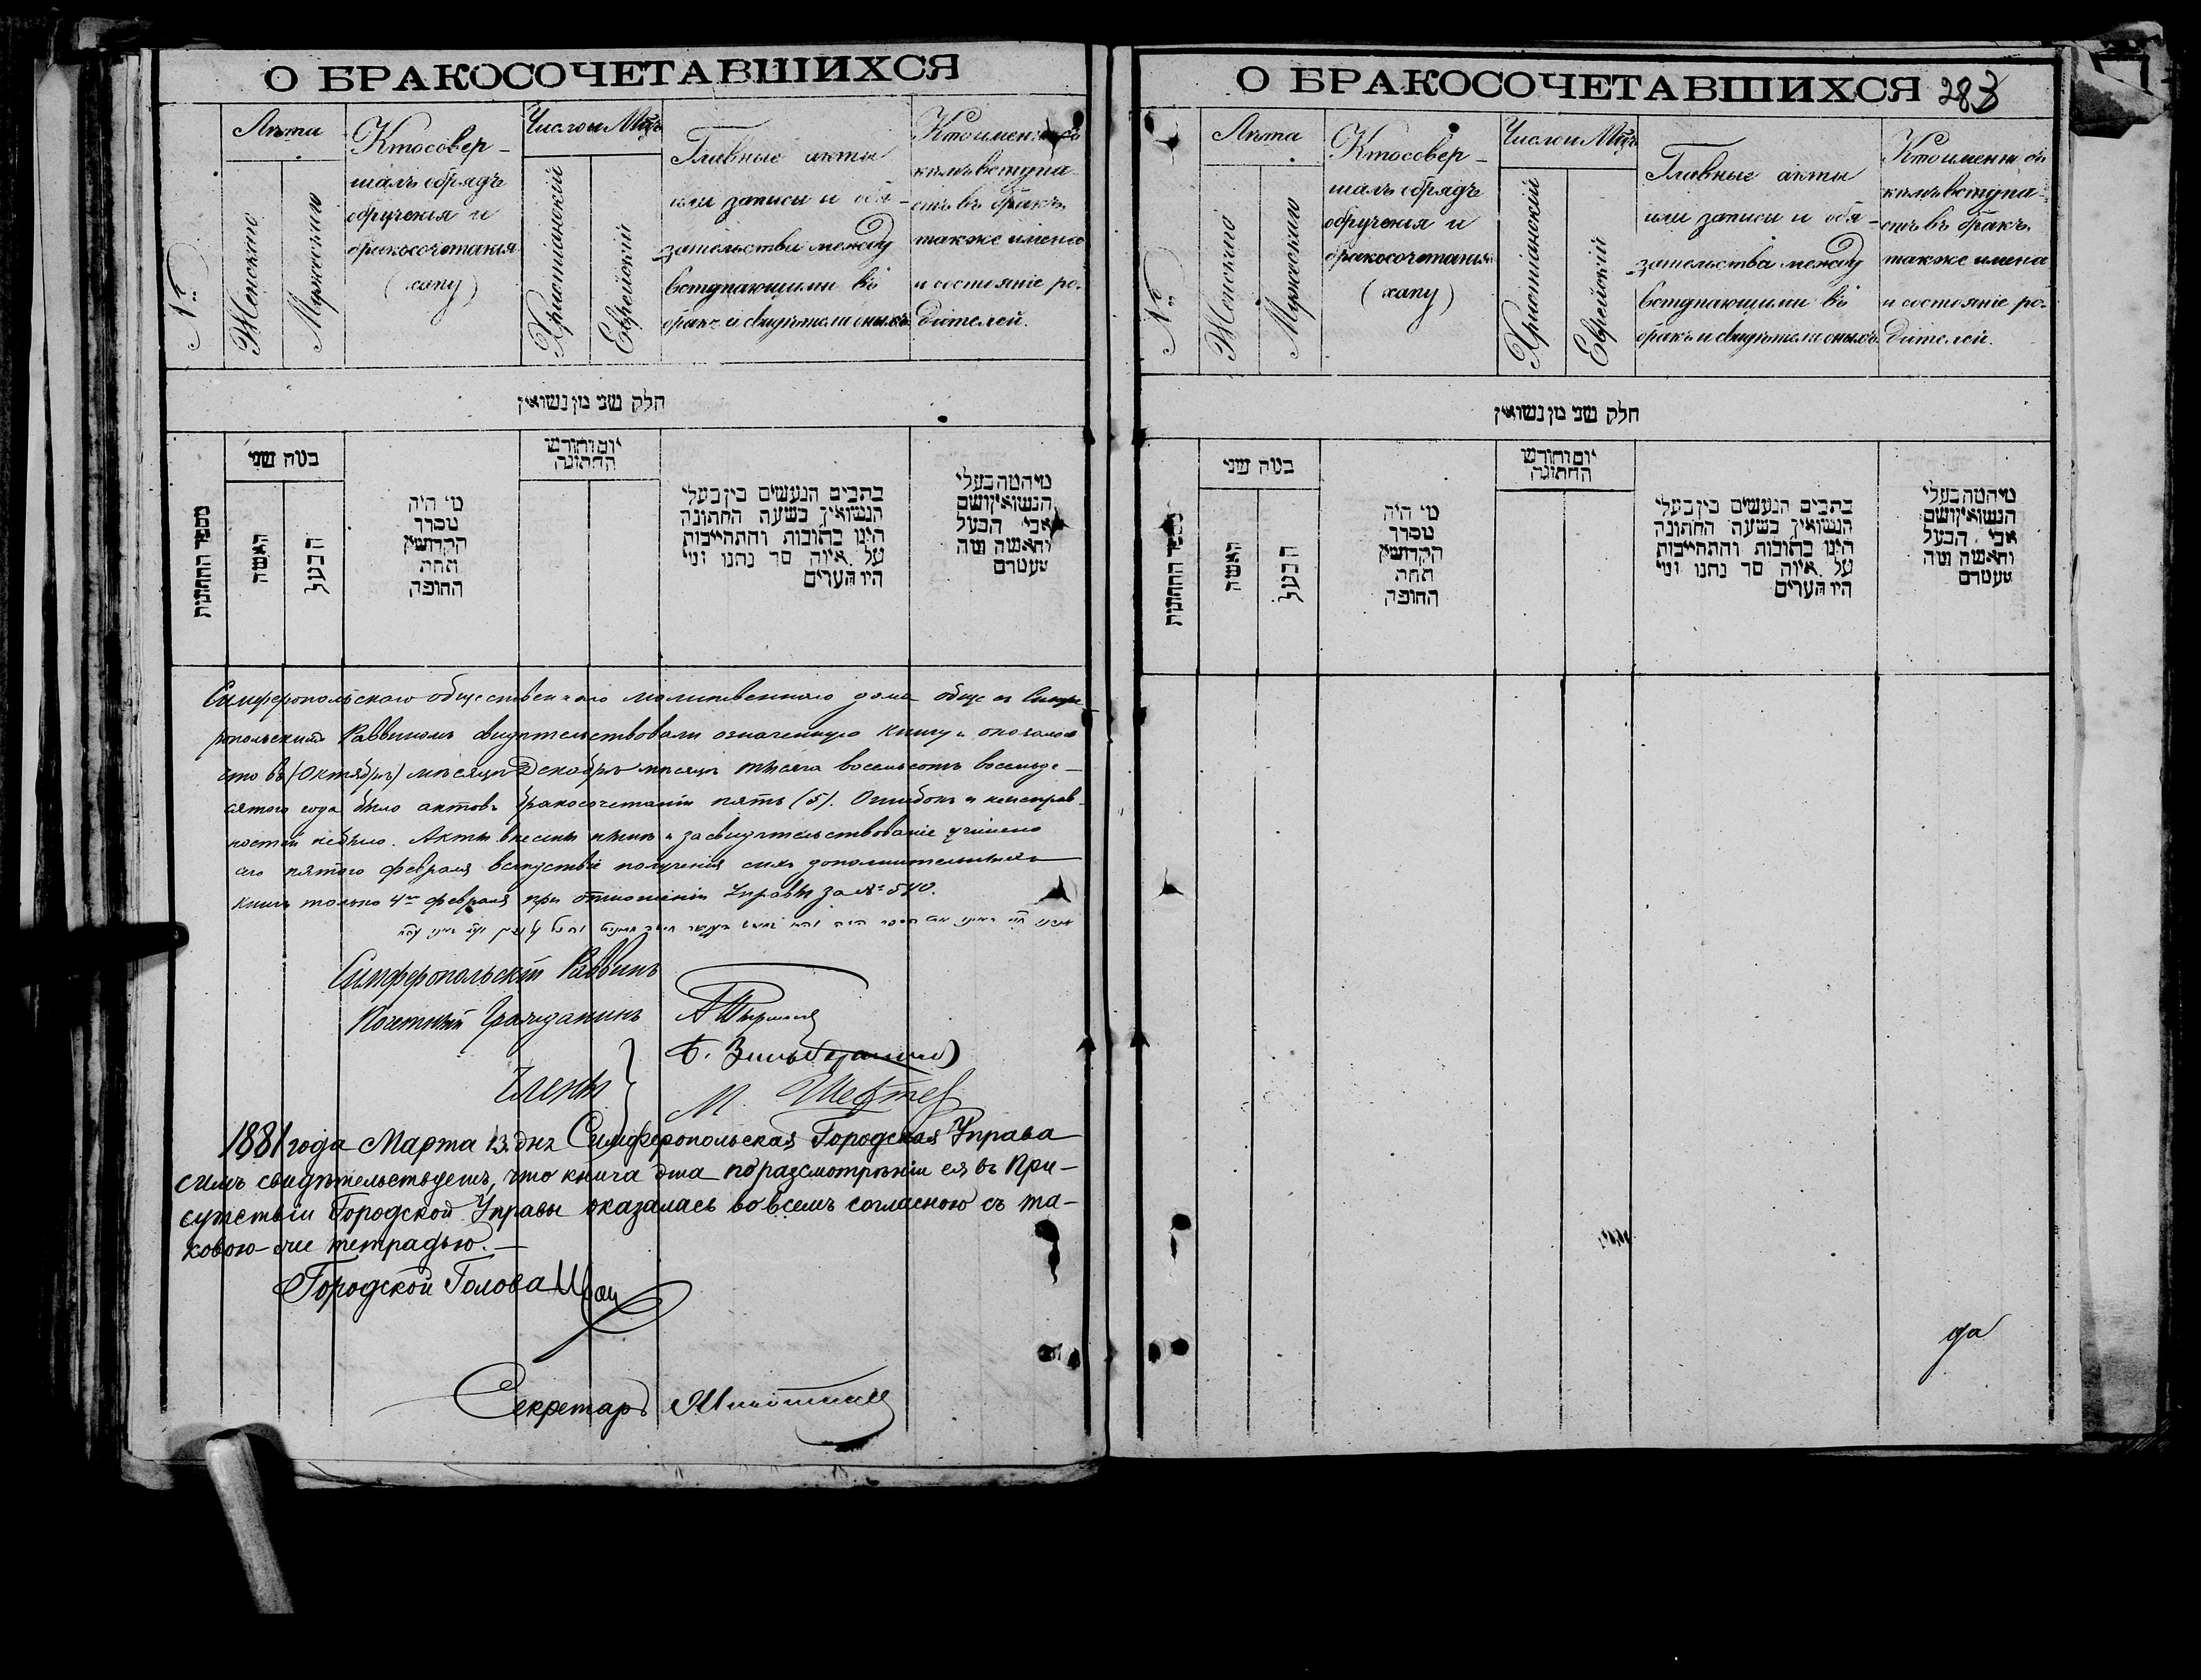 О БРАКОСОЧЕТАВШИХСЯ
№
Лѣта
Женскаго
Мужескаго
Кто совер-
шалъ обрядъ
обрученія и
бракосочетанія
(хапу)
Число и Мѣцъ
Христіанскій
Еврейскій
Главные акты
или записи и обя-
зательства между
вступающими въ
бракъ и свидѣтели оныхъ
Кто именно съ
кѣмъ вступа-
етъ въ бракъ,
также имена
и состояніе ро-
дителей.
חלק שני מן נשואין
מספר החתונות
במה שני
האשה
הבעל
מי היה
מסדר
הקדושין
תחת
החופה
יום וחודש
החתונה
כתבים הנעשים בין בעלי
הנשואין בשעה החתונה
הינו כתובות והתחייבות
על איזה סך נתנו ומי
היו העדים
מיהמה בעלי
הנשואין ושם
אבי הבעל
והאשה ומה
מעמדם
Симферопольскаго общественнаго молитвеннаго дома обще съ Симфе
ропольскимъ Раввиномъ свидѣтельствовали означенную книгу и оказалось
что въ (Октябрѣ) мѣсяцѣ Декабрѣ мѣсяцѣ тысяча восемьсотъ восемьде-
сятого года было актовъ бракосочетанія пять (5). Ошибокъ и неисправ-
ностей небыло. Акты внесены и засвидѣтельствованіе учинено
сего пятого февраля вслѣдствіе полученія сихъ дополнительныхъ
книгъ только 4го февраля при отношеніи Управы за № 540.
Симферопольскій Раввинъ
Почетный Гражданинъ
Члены }
М. Шефтел
1881 года Марта 13 дня Симферопольская Городская Управа
симъ свидѣтельствуетъ, что книга эта по разсмотрѣніи ея въ При-
сутствіи Городской Управы оказалась во всемъ согласною съ та-
ковою-же тетрадью.—
Городской Голова
Секретарь
О БРАКОСОЧЕТАВШИХСЯ 283
№
Лѣта
Женскаго
Мужескаго
Кто совер-
шалъ обрядъ
обрученія и
бракосочетанія
(хапу)
Число и Мѣцъ
Христіанскій
Еврейскій
Главные акты
или записи и обя-
зательства между
вступающими въ
бракъ и свидѣтели оныхъ
Кто именно съ
кѣмъ вступа-
етъ въ бракъ,
также имена
и состояніе ро-
дителей.
חלק שני מן נשואין
מספר החתונות
במה שני
האשה
הבעל
מי היה
מסדר
הקדושין
תחת
החופה
יום וחודש
החתונה
כתבים הנעשים בין בעלי
הנשואין בשעה החתונה
הינו כתובות והתחייבות
על איזה סך נתנו ומי
היו העדים
מיהמה בעלי
הנשואין ושם
אבי הבעל
והאשה ומה
מעמדם
да